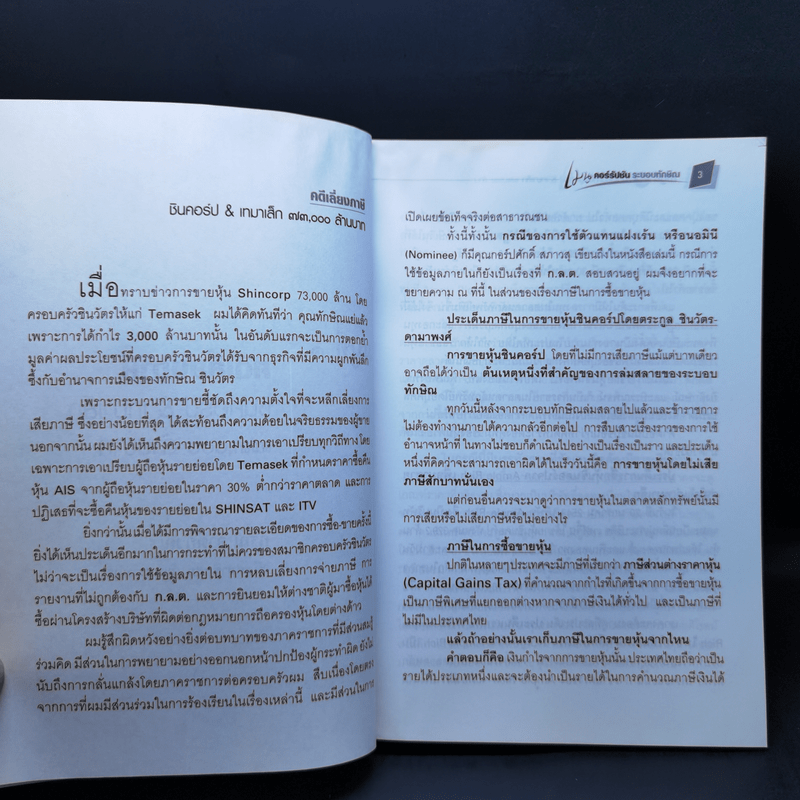 คดีเลี่ยงภาษี
ชินคอร์ป & เทมาเส็ก ๗๓,๐๐๐ ล้านบาท
เมื่อทราบข่าวการขายหุ้น Shincorp 73,000 ล้าน โดย
ครอบครัวชินวัตรให้แก่ Temasek ผมได้คิดทันทีว่า คุณทักษิณแย่แล้ว
เพราะการได้กำไร 3,000 ล้านบาทนั้น ในอันดับแรกจะเป็นการตอกย้ำ
มูลค่าผลประโยชน์ที่ครอบครัวชินวัตรได้รับจากธุรกิจที่มีความผูกพันลึก
ซึ้งกับอำนาจการเมืองของทักษิณ ชินวัตร
เพราะกระบวนการขายชี้ชัดถึงความตั้งใจที่จะหลีกเลี่ยงการ
เสียภาษี ซึ่งอย่างน้อยที่สุด ได้สะท้อนถึงความด้อยในจริยธรรมของผู้ขาย
นอกจากนั้น ผมยังได้เห็นถึงความพยายามในการเอาเปรียบทุกวิถีทาง โดย
เฉพาะการเอาเปรียบผู้ถือหุ้นรายย่อยโดย Temasek ที่กำหนดราคาซื้อคืน
หุ้น AIS จากผู้ถือหุ้นรายย่อยในราคา 30% ต่ำกว่าราคาตลาด และการ
ปฏิเสธที่จะซื้อคืนหุ้นของรายย่อยใน SHINSAT และ ITV
ยิ่งกว่านั้นเมื่อได้มีการพิจารณารายละเอียดของการซื้อ-ขายครั้งนี้
ยิ่งได้เห็นประเด็นอีกมากในการกระทำที่ไม่ควรของสมาชิกครอบครัวชินวัตร
ไม่ว่าจะเป็นเรื่องการใช้ข้อมูลภายใน การหลบเลี่ยงการจ่ายภาษี การ
รายงานที่ไม่ถูกต้องกับ ก.ล.ต. และการยินยอมให้ต่างชาติผู้มาซื้อหุ้นได้
ซื้อผ่านโครงสร้างบริษัทที่ผิดต่อกฎหมายการถือครองหุ้นโดยต่างด้าว
ผมรู้สึกผิดหวังอย่างยิ่งต่อบทบาทของภาคราชการที่มีส่วนสมรู้
ร่วมคิด มีส่วนในการพยายามอย่างออกนอกหน้าปกป้องผู้กระทำผิด ยังไม่
นับถึงการกลั่นแกล้งโดยภาคราชการต่อครอบครัวผม สืบเนื่องโดยตรง
จากการที่ผมมีส่วนร่วมในการร้องเรียนในเรื่องเหล่านี้ และมีส่วนในการ
คอร์รัปชัน ระบอบทักษิณ 3
เปิดเผยข้อเท็จจริงต่อสาธารณชน
ทั้งนี้ทั้งนั้น กรณีของการใช้ตัวแทนแฝงเร้น หรือนอมินี
(Nominee) ก็มีคุณกอร์ปศักดิ์ สภาวสุ เขียนถึงในหนังสือเล่มนี้ กรณีการ
ใช้ข้อมูลภายในก็ยังเป็นเรื่องที่ ก.ล.ต. สอบสวนอยู่ ผมจึงอยากที่จะ
ขยายความ ณ ที่นี้ ในส่วนของเรื่องภาษีในการซื้อขายหุ้น
ประเด็นภาษีในการขายหุ้นชินคอร์ปโดยตระกูล ชินวัตร-
ดามาพงศ์
การขายหุ้นชินคอร์ป โดยที่ไม่มีการเสียภาษีแม้แต่บาทเดียว
อาจถือได้ว่าเป็น ต้นเหตุหนึ่งที่สำคัญของการล่มสลายของระบอบ
ทักษิณ
ทุกวันนี้หลังจากระบอบทักษิณล่มสลายไปแล้วและข้าราชการ
ไม่ต้องทำงานภายใต้ความกลัวอีกต่อไป การสืบเสาะเรื่องราวของการใช้
อำนาจหน้าที่ ในทางไม่ชอบก็ดำเนินไปอย่างเป็นเรื่องเป็นราว และประเด็น
หนึ่งที่คิดว่าจะสามารถเอาผิดได้ในเร็ววันนี้คือ การขายหุ้นโดยไม่เสีย
ภาษีสักบาทนั่นเอง
แต่ก่อนอื่นควรจะมาดูว่าการขายหุ้นในตลาดหลักทรัพย์นั้นมี
การเสียหรือไม่เสียภาษีหรือไม่อย่างไร
ภาษีในการซื้อขายหุ้น
ปกติในหลายๆประเทศจะมีภาษีที่เรียกว่า ภาษีส่วนต่างราคาหุ้น
(Capital Gains Tax) ที่คำนวณจากกำไรที่เกิดขึ้นจากการซื้อขายหุ้น
เป็นภาษีพิเศษที่แยกออกต่างหากจากภาษีเงินได้ทั่วไป และเป็นภาษีที่
ไม่มีในประเทศไทย
แล้วถ้าอย่างนั้นเราเก็บภาษีในการขายหุ้นจากไหน
คำตอบก็คือ เงินกำไรจากการขายหุ้นนั้น ประเทศไทยถือว่าเป็น
รายได้ประเภทหนึ่งและจะต้องนำเป็นรายได้ในการคำนวณภาษีเงินได้